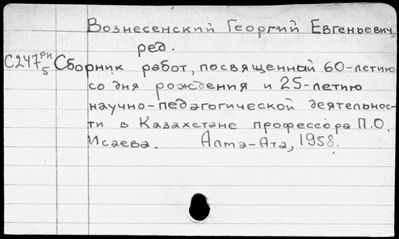 Вознесенский Георгий Евгеньевич,
ред.
С247РИ/5 Сборник работ, посвященный 60-летию
со дня рождения и 25-летию
научно-педагогической деятельнос-
ти в Казахстане профессора П.О.
Исаева. Алма-Ата, 1958.